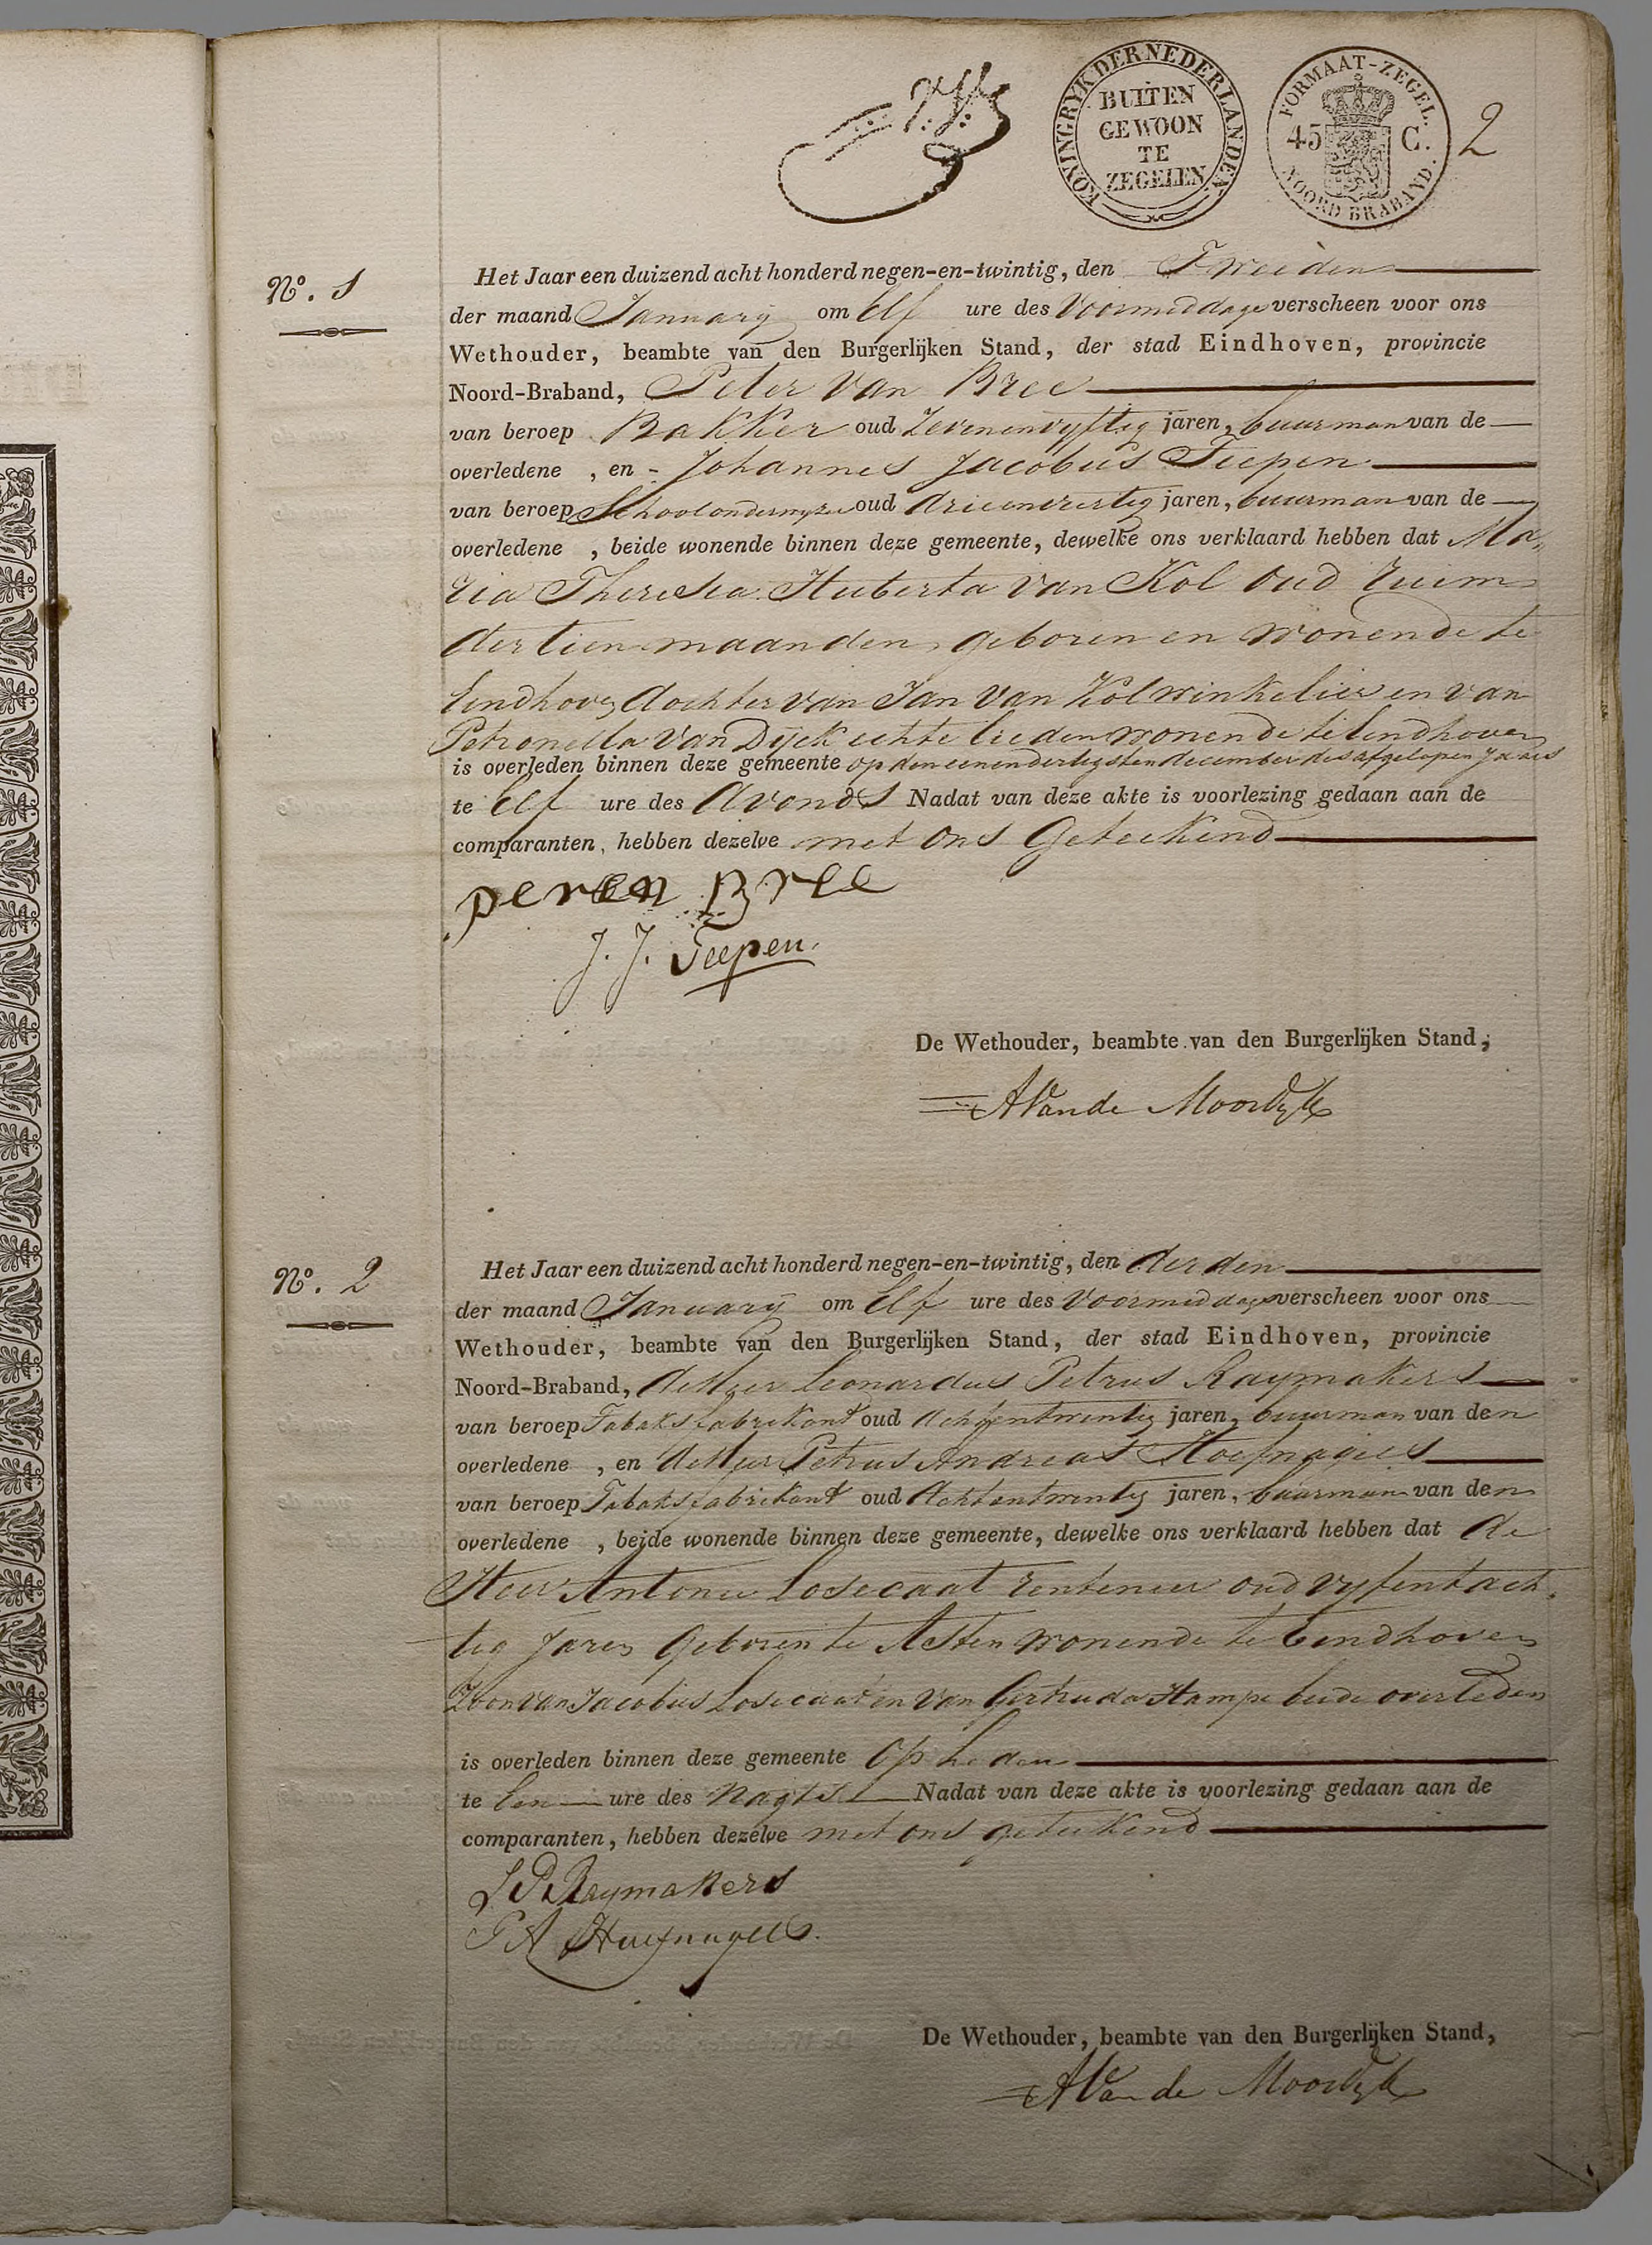 KONINGRYK DER NEDERLANDEN
BUITEN
GEWOON
TE
ZEGELEN
FORMAAT-ZEGEL.
45 C.
NOORD BRABAND.
2
No. 1
Het Jaar een duizend acht honderd negen-en-twintig, den Tweeden
der maand January om Elf ure des Voormiddags verscheen voor ons
Wethouder, beambte van den Burgerlijken Stand, der stad Eindhoven, provincie
Noord-Braband, Peter Van Bree
van beroep Bakker oud Zevenenvyftig jaren, buurman van de
overledene , en Johannes Jacobus Teepen
van beroep Schoolonderwyzer oud drieenveertig jaren, buurman van de
overledene , beide wonende binnen deze gemeente, dewelke ons verklaard hebben dat Ma„
ria Theresia Huberta Van Kol oud ruim
dertien maanden, geboren en wonende te
Eindhoven dochter van Jan Van Kol winkelier en van
Petronella Van Dijck echte lieden wonende te Eindhoven
is overleden binnen deze gemeente op den eenendertigsten december des afgelopen Jaars
te Elf ure des Avonds Nadat van deze akte is voorlezing gedaan aan de
comparanten, hebben dezelve met ons Geteekend
Bree
J. J. Teepen.
De Wethouder, beambte van den Burgerlijken Stand,
AVande Moordyk
No. 2
Het Jaar een duizend acht honderd negen-en-twintig, den derden
der maand January om Elf ure des Voormiddags verscheen voor ons
Wethouder, beambte van den Burgerlijken Stand, der stad Eindhoven, provincie
Noord-Braband, de Heer Leonardus Petrus Raymakers
van beroep Tabaksfabrikant oud achtentwintig jaren, buurman van den
overledene , en de Heer Petrus Andreas Hoefnagels
van beroep Tabaksfabrikant oud Achtentwintig jaren, buurman van den
overledene , beide wonende binnen deze gemeente, dewelke ons verklaard hebben dat de
Heer Antonie Losecaat rentenier oud vyfentach„
tig Jaren Geboren te Asten wonende te Eindhoven
Zoon van Jacobus Losecaat en Van Gertruda Hampe beide overleden
is overleden binnen deze gemeente Op heden
te Een ure des Nagts Nadat van deze akte is voorlezing gedaan aan de
comparanten, hebben dezelve met ons geteekend
L P Raymakers
P A Hoefnagels.
De Wethouder, beambte van den Burgerlijken Stand,
AVan de Moordyk